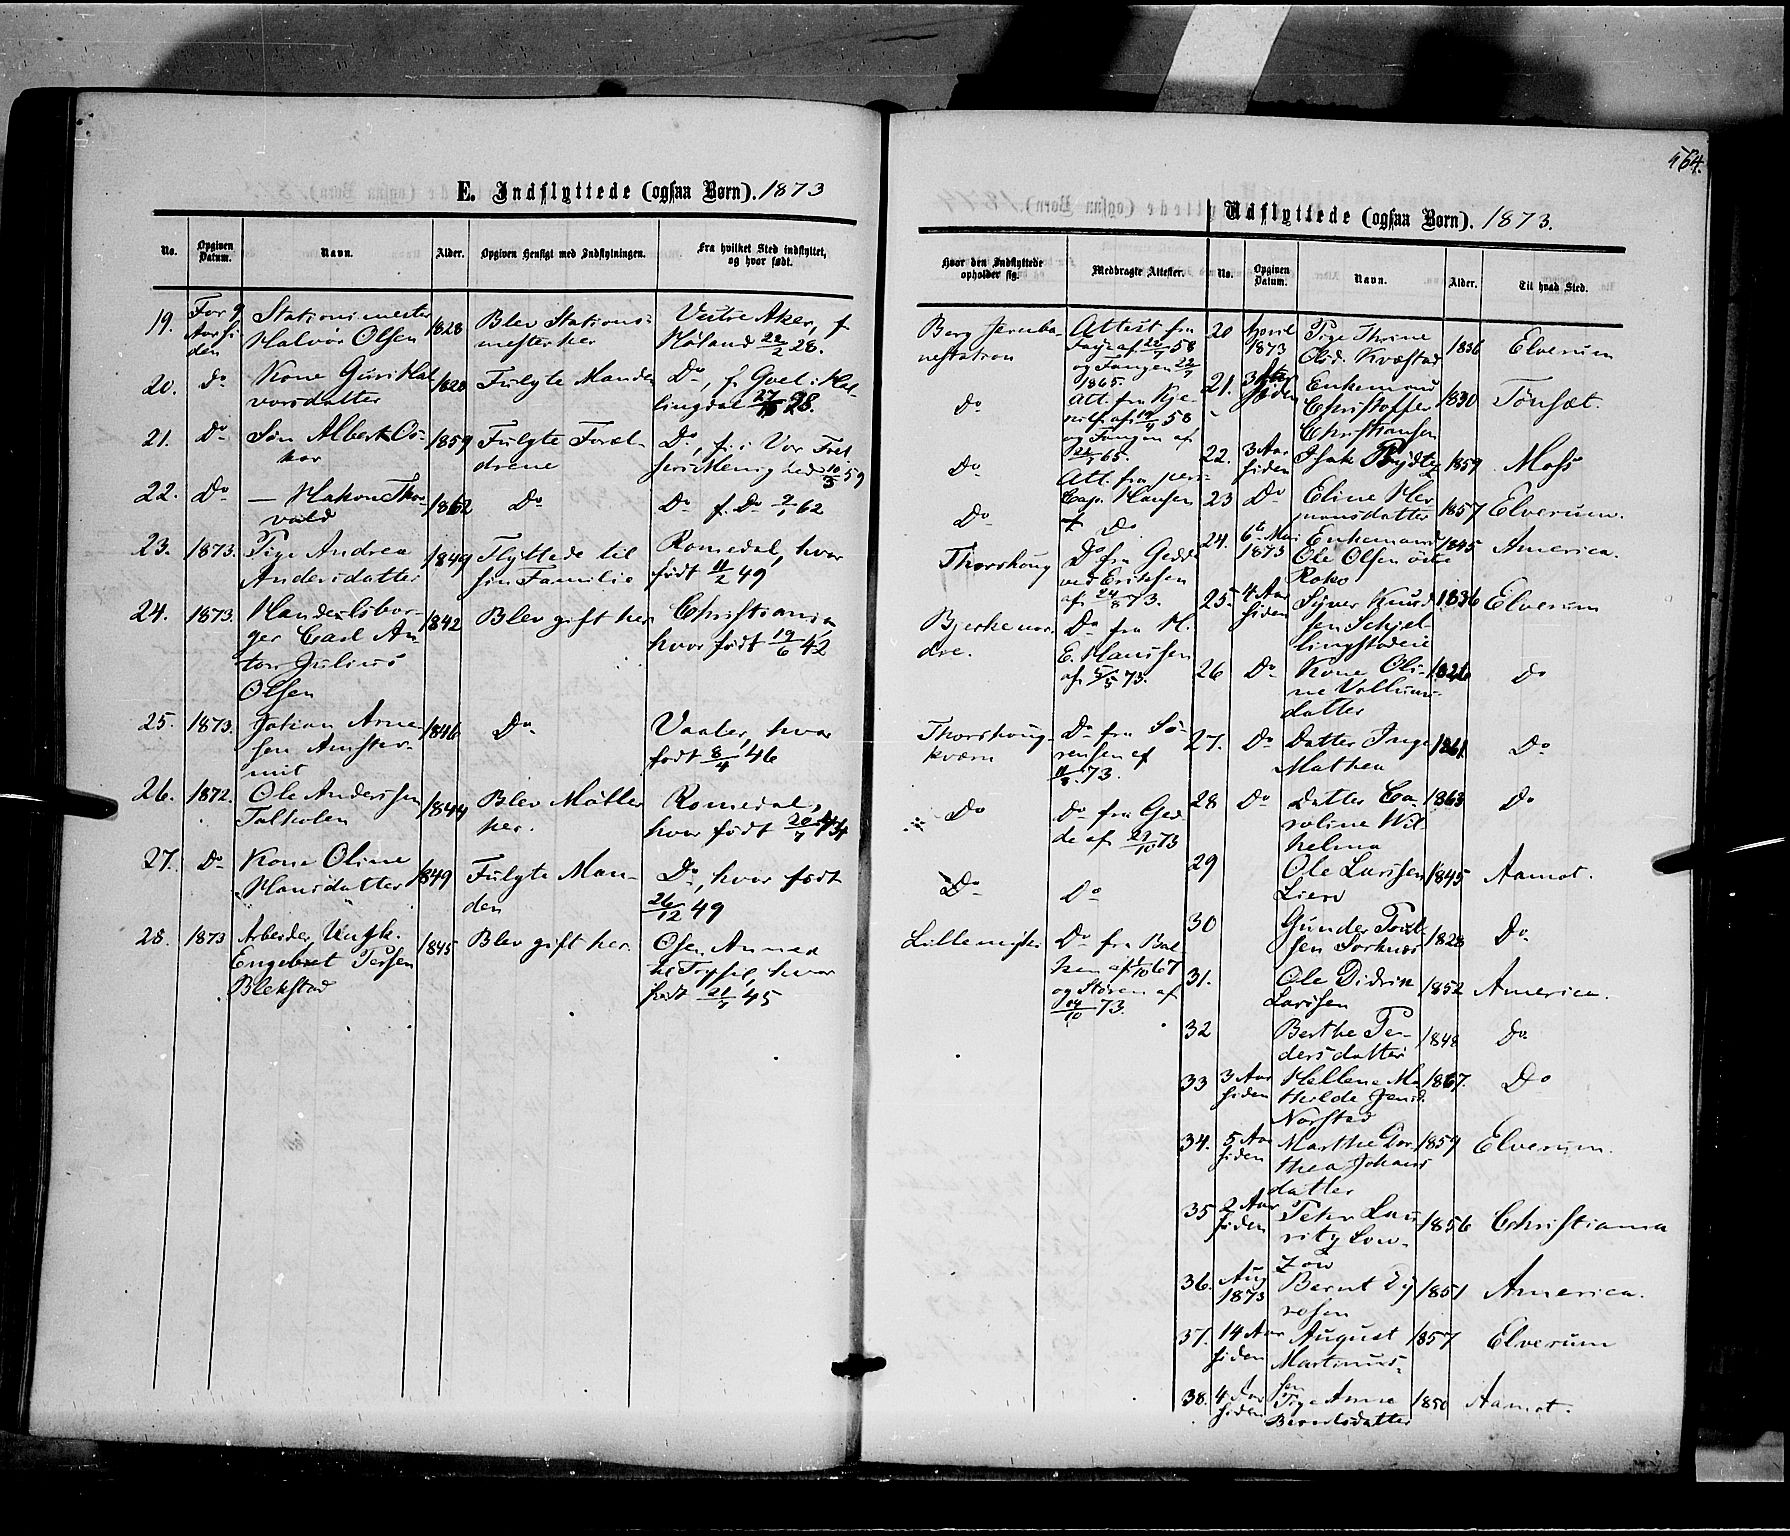 564.
E. Indflyttede (ogsaa Børn). 1873
No. Opgiven Datum. Navn. Alder. Opgiven Hensigt med Indflytningen. Fra hvilket Sted indflyttet, og hvor født.
19. For 9 Aar siden Stationsmester Halvor Olsen 1828 Blev Stationsmester her Vestre Aker, f Høland 22/2 28.
20. Do Kone Guri Halvorsdatter 1828 Fulgte Manden Do, f. Goel i Hallingdal 28.
21. Do Søn Albert Oskar 1859 Fulgte Forældrene Do, f. i Vor Frel 10/3 59
22. Do — Hakon Thorvald 1862 Do Do f. Do 2/1 62
23. 1873. Pige Andrea Andersdatter 1849 Flyttede til sin Familie Romedal, hvor født 11/2 49
24. 1873. Carl Anton Julius Olsen 1842 Blev gift her Christiania, hvor født 19/6 42
25. 1873. Johan Arnesen 1846 Do Vaaler, hvor født 8/4 46
26. 1872. Ole Anderssen 1844 Blev Møller her. Romedal, hvor født 20/7 44
27. Do Kone Oline Hansdatter 1849 Fulgte Manden Do, hvor født 26/12 49
28. 1873 Arbeider Ungk. Engebret Persen Blekstad 1845 Blev gift her Osen Annex til Trysil, hvor født 21/7 45
Hvor den Indflyttede opholder sig. Medbragte Attester.
Berg Jernbanestation Attest fra af 58 og Tangen 1865.
Do Att. fra af 58 og Tangen af 65.
Do Att. fra pers. Cap. Hansen
Do + Do
Thorshoug Do fra Gedde ved Eriksen af 24/8 73.
Bjerke nordre. Do fra H. E. Hanssen af 5/5 73.
Thorshoug kværn Do fra Sørensen af 73.
Do Do fra Gedde af 21/10 73
Do Do
Lille Do fra af 67 og Støren af 73.
Udflyttede (ogsaa Børn). 1873.
No. Opgiven Datum. Navn. Alder. Til hvad Sted.
20 April 1873 Pige Thrine Olsd. Kvæstad 1836 Elverum
21. 3 Aar siden Enkemand Christoffer Christiansen 1830 Tønset.
22. 3 Aar siden Isak 1859 Moss
23 Do Eline Hermansdatter 1857 Elverum.
24. 6te Mai 1873 Enkemand Ole Olsen Roko 1845 America.
25. 4 Aar siden Syver Knudsen 1836 Elverum
26 Do Kone Oline 1826 Do
27. Do Datter Inge Mathea 1861 Do
28 Do Datter Caroline Wilhelma 1863 Do
29 Ole Larssen Lien 1845 Aamot.
30 Gunder 1828 Do
31. Ole Didrik Larssen 1852 America.
32 Berthe Pedersdatter 1848 Do
33 3 Aar siden Hellene Mathilde Norstad 1867. Do
34. 5 Aar siden Marthe Dorthea Johansdatter 1859 Elverum.
35 2 Aar siden Peter Lauritz Lowzow 1856 Christiania
36. Aug 1873 Bernt 1851 America.
37. 14 Aar siden August Martinussen 1857 Elverum
38. 4 Aar siden Pige Anne Berntsdatter 1850 Aamot.